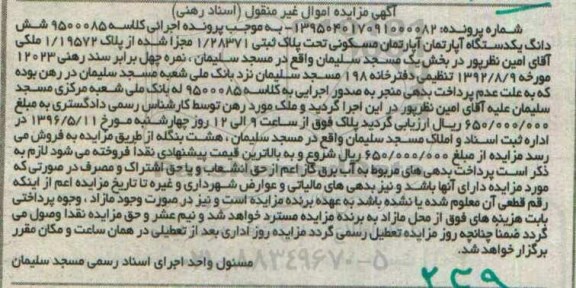 آگهی مزایده اموال غیر منقول (اسناد رهنی)
شماره پرونده: ۱۳۹۵۰۴۰۱۷۰۹۱۰۰۰۰۸۲- به موجب پرونده اجرائی کلاسه ۹۵۰۰۰۸۵ شش
دانگ یکدستگاه آپارتمان آپارتمان مسکونی تحت پلاک ثبتی ۱/۲۸۳۷۱ مجزا شده از پلاک ۱/۱۹۵۷۲ ملکی
آقای امین نظرپور در بخش یک مسجد سلیمان واقع در مسجد سلیمان ، نمره چهل برابر سند رهنی ۱۲۰۲۳
مورخه ۱۳۹۲/۸/۹ تنظیمی دفترخانه ۱۹۸ مسجد سلیمان نزد بانک ملی شعبه مسجد سلیمان در رهن بوده
که به علت عدم پرداخت بدهی منجر به صدور اجرایی به کلاسه ۹۵۰۰۰۸۵ له بانک ملی شعبه مرکزی مسجد
سلیمان علیه آقای امین نظرپور در این اجرا گردید و ملک مورد رهن توسط کارشناس رسمی دادگستری به مبلغ
۶۵۰/۰۰۰/۰۰۰ ریال ارزیابی گردید پلاک فوق از ساعت ۹ الی ۱۲ روز چهارشنبه مورخ ۱۳۹۶/۵/۱۱ در
اداره ثبت اسناد و املاک مسجد سلیمان واقع در مسجد سلیمان ، هشت بنگله از طریق مزایده به فروش می
رسد مزایده از مبلغ ۶۵۰/۰۰۰/۰۰۰ ریال شروع و به بالاترین قیمت پیشنهادی نقدا فروخته می شود لازم به
ذکر است پرداخت بدهی های مربوط به آب برق گاز اعم از حق انشعاب و یا حق اشتراک و مصرف در صورتی که
مورد مزایده دارای آنها باشد و نیز بدهی های مالیاتی و عوارض شهرداری و غیره تا تاریخ مزایده اعم از اینکه
رقم قطعی آن معلوم شده یا نشده باشد به عهده برنده مزایده است و نیز در صورت وجود مازاد ، وجوه پرداختی
بابت هزینه های فوق از محل مازاد به برنده مزایده مسترد خواهد شد و نیم عشر و حق مزایده نقدا وصول می
گردد ضمنا چنانچه روز مزایده تعطیل رسمی گردد مزایده روز اداری بعد از تعطیلی در همان ساعت و مکان مقرر
برگزار خواهد شد.
مسئول واحد اجرای اسناد رسمی مسجد سلیمان
۲۴۹